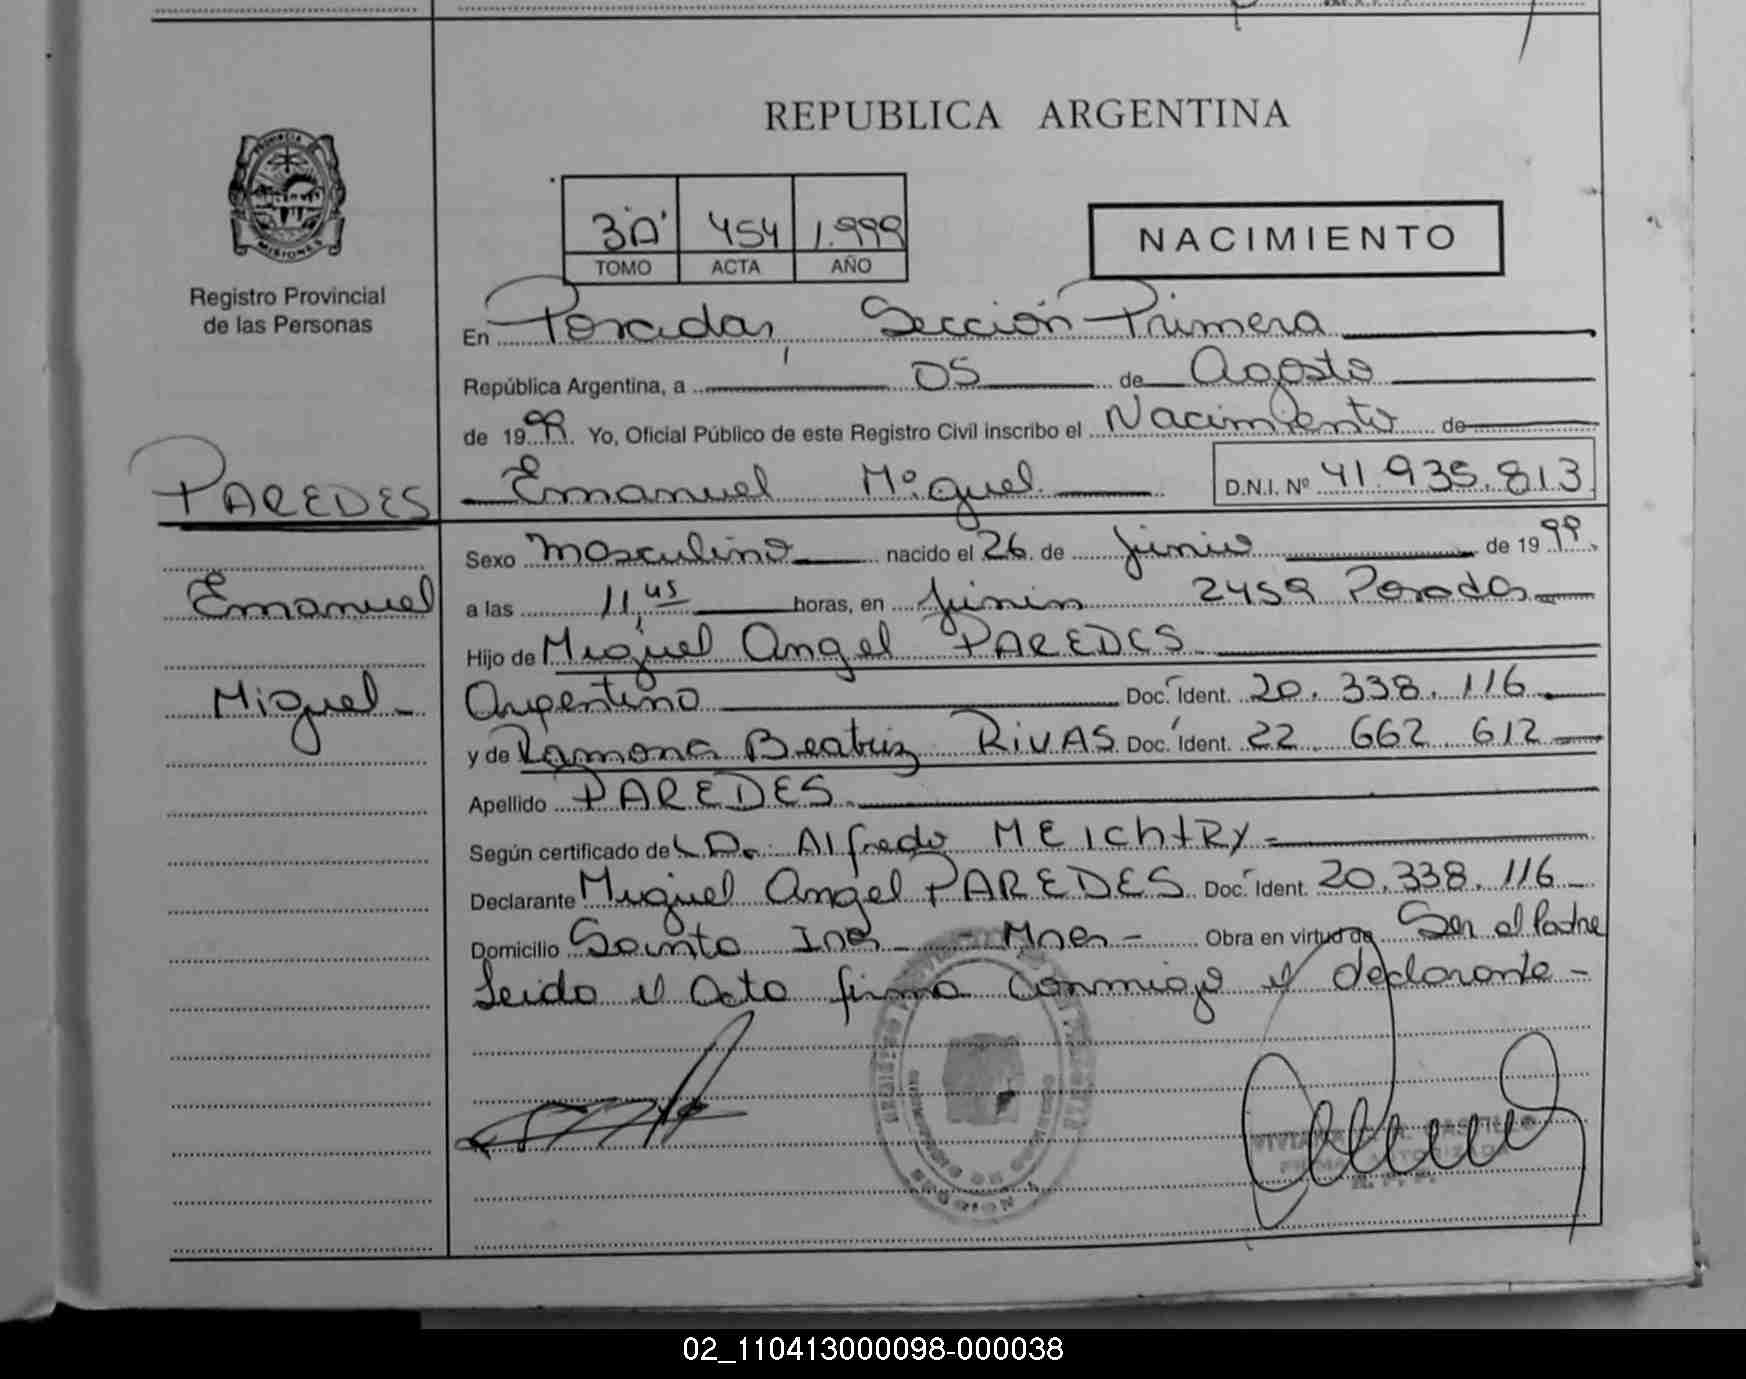 REPUBLICA ARGENTINA
PROVINCIA DE
MISIONES
Registro Provincial
de las Personas
3"A" 454 1.999
TOMO ACTA AÑO
NACIMIENTO
En Posadas, Sección Primera
República Argentina, a 05 de Agosto
de 1999. Yo, Oficial Público de este Registro Civil inscribo el Nacimiento de
PAREDES
Emanuel Miguel D.N.I. Nº 41.935.813
Sexo Masculino nacido el 26 de Junio de 1999.
Emanuel
a las 11,45 horas, en Junin 2459 Posadas
Hijo de Miguel Angel PAREDES
Miguel-
Argentino Doc. Ident. 20.338.116
y de Ramona Beatriz RIVAS Doc. Ident. 22.662.612
Apellido PAREDES
Según certificado de Dr. Alfredo MEIChtRy
Declarante Miguel Angel PAREDES Doc. Ident. 20.338.116
Domicilio Santa Ines - Mnes - Obra en virtud de Ser el Padre
Leido el Acta firma conmigo el declarante -
VIVIANA CASTILLO
FIRMA AUTORIZADA
02_110413000098-000038